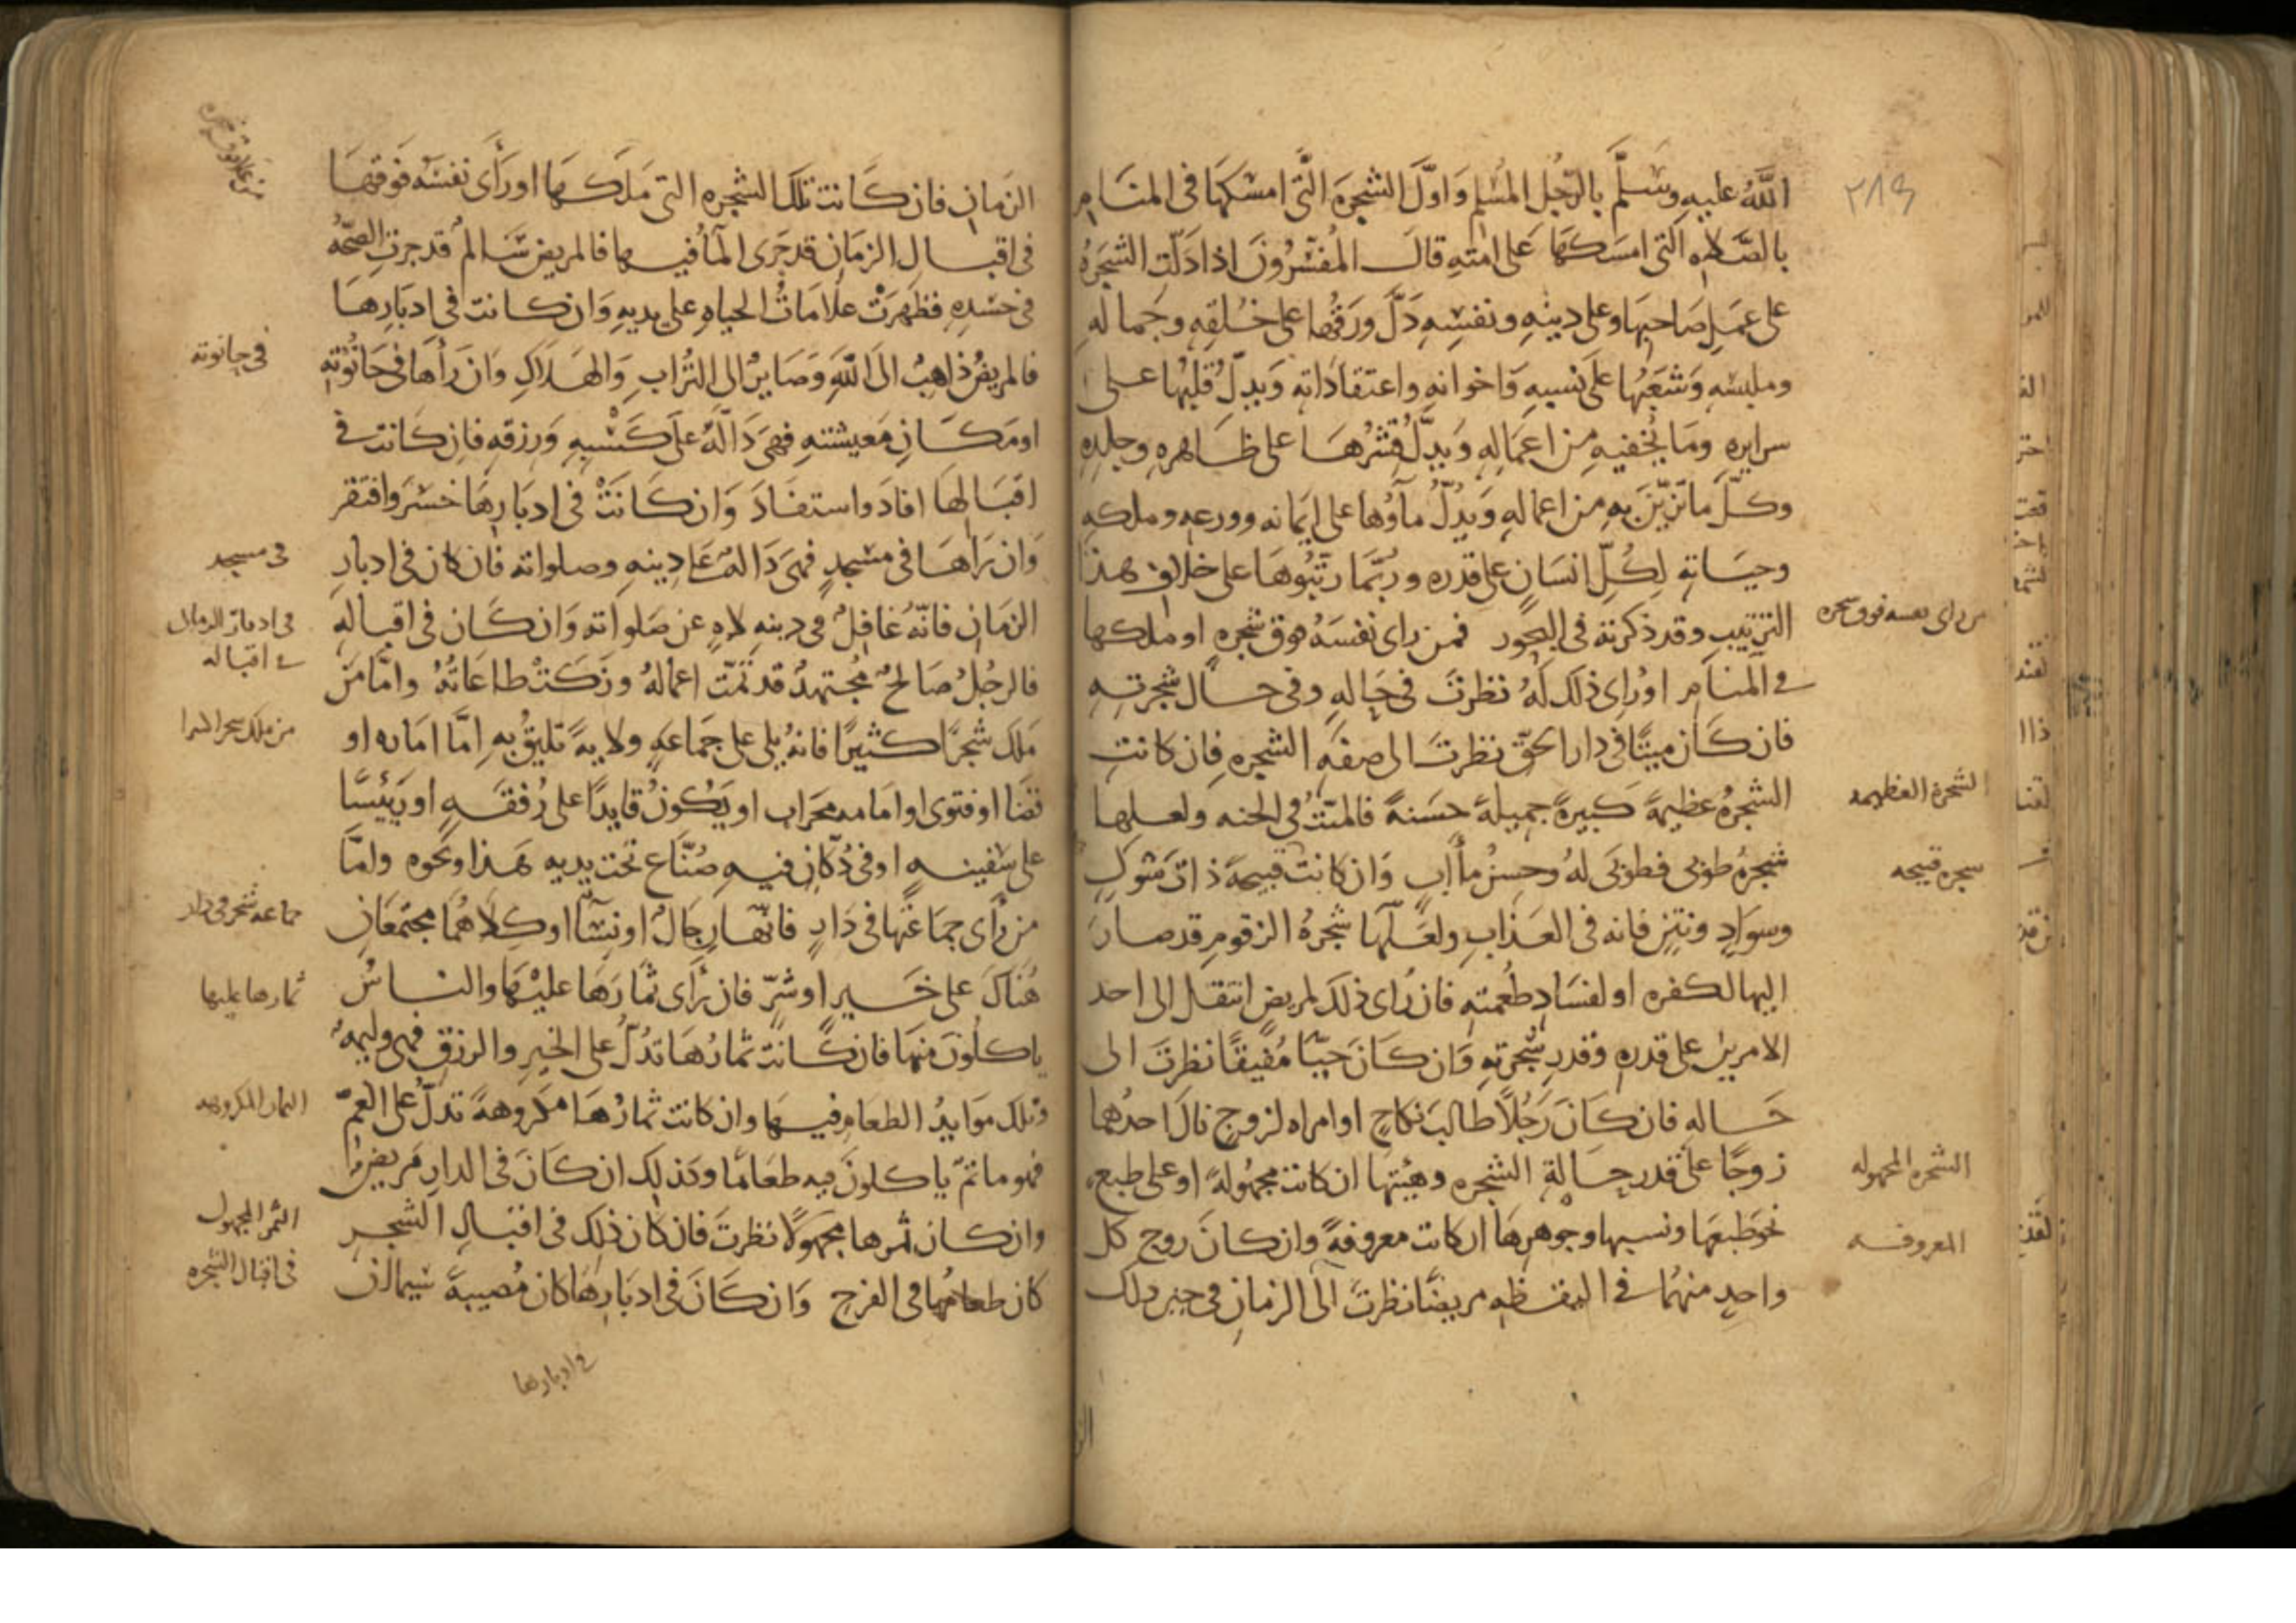 ٢٨٩
الله عليه وسلم بالرجل المسلم واول الشجره التى امسكها فى المنام
بالصلاه التى امسكها على امته قال المفسرون اذا دلت الشجره
على عمل صاحبها وعلى دينه ونفسه دل ورقها على خلقه وجماله
وملبسه وشعبها على نسبه واخوانه واعتقاداته ويدل قلبها على
سرايره وما يخفيه من اعماله ويدل قشرها على ظاهره وجلده
وكل ما تزين به من اعماله ويدل ماؤها على ايمانه وورعه وملكه
وحياته لكل انسان على قدره وربما رتبوها على خلاف هذا
الترتيب وقد ذكرته فى البحور فمن راى نفسه فوق شجره او ملكها
فى المنام او راى ذلك له نظرت فى حاله وفى حال شجرته
فان كان ميتا فى دار الحق نظرت الى صفه الشجره فان كانت
الشجره عظيمة كبيرة جميلة حسنة فالميت فى الجنه ولعلها
شجره طوبى فطوبى له وحسن ماأب وان كانت قبيحة ذات شوك
وسواد ونتن فانه فى العذاب ولعلها شجره الزقوم قد صار
اليها لكفره او لفساد طعمته فان راى ذلك لمريض انتقل الى احد
الامرين على قدره وقدر شجرته وان كان حيا مفيقا نظرت الى
حاله فان كان رجلا طالب نكاح او امراه لزوج نال احدهما
زوجا على قدر حالة الشجره وهيئتها ان كانت مجهولة او على طبعه
نحو طبعها ونسبها وجوهرها ان كانت معروفة وان كان زوج كل
واحد منهما فى اليقظه مريضا نظرت الى الزمان فى حين ذلك
من راى نفسه فوق شجره
الشجره العظيمه
شجره قبيحه
الشجره المجهوله
المعروفه
الزمان فان كانت تلك الشجره التى ملكها او رأى نفسه فوقها
فى اقبال الزمان قد جرى المأ فيها فالمريض سالم قد جرت الصحه
فى جسده فظهرت علامات الحياه على بدنه وان كانت فى ادبارها
فالمريض ذاهب الى الله وصاير الى التراب والهلاك وان رأها فى حانوته
او مكان معيشته فهى دالة على كسبه ورزقه فان كانت فى
اقبالها افاد واستفاد وان كانت فى ادبارها خسر وافتقر
وان راها فى مسجد فهى دالة على دينه وصلواته فان كان فى ادبار
الزمان فانه غافل فى دينه لاه عن صلواته وان كان فى اقباله
فالرجل صالح مجتهد قد نمت اعماله وزكت طاعاته واما من
ملك شجرا كثيرا فانه يلى على جماعه ولاية تليق به اما اماره او
قضا او فتوى او امامه محراب او يكون قايدا على رفقه او رييسا
على سفينه او فى دكان فيه صناع تحت يديه هذا ونحوه واما
من رأى جماعتها فى دار فانها رجال او نسآ او كلاهما مجتمعان
هناك على خير او شر فان رأى ثمارها عليها والناس
ياكلون منها فان كانت ثمارها تدل على الخير والرزق فهى وليمة
وتلك موايد الطعام فيها وان كانت ثمارها مكروهة تدل على الغم
فهو ماتم ياكلون فيه طعاما وكذلك ان كان فى الدار مريض
وان كان ثمرها مجهولا نظرت فان كان ذلك فى اقبال الشجر
كان طعامها فى الفرج وان كان فى ادبارها كان مصيبة سيما ان
فى حانوته
فى مسجد
فى ادبار الزمان
فى اقباله
من ملك شجرا كثيرا
جماعه شجر فى دار
ثمارها عليها
الثمار المكروهه
الثمر المجهول
فى اقبال الشجره
فى ادبارها